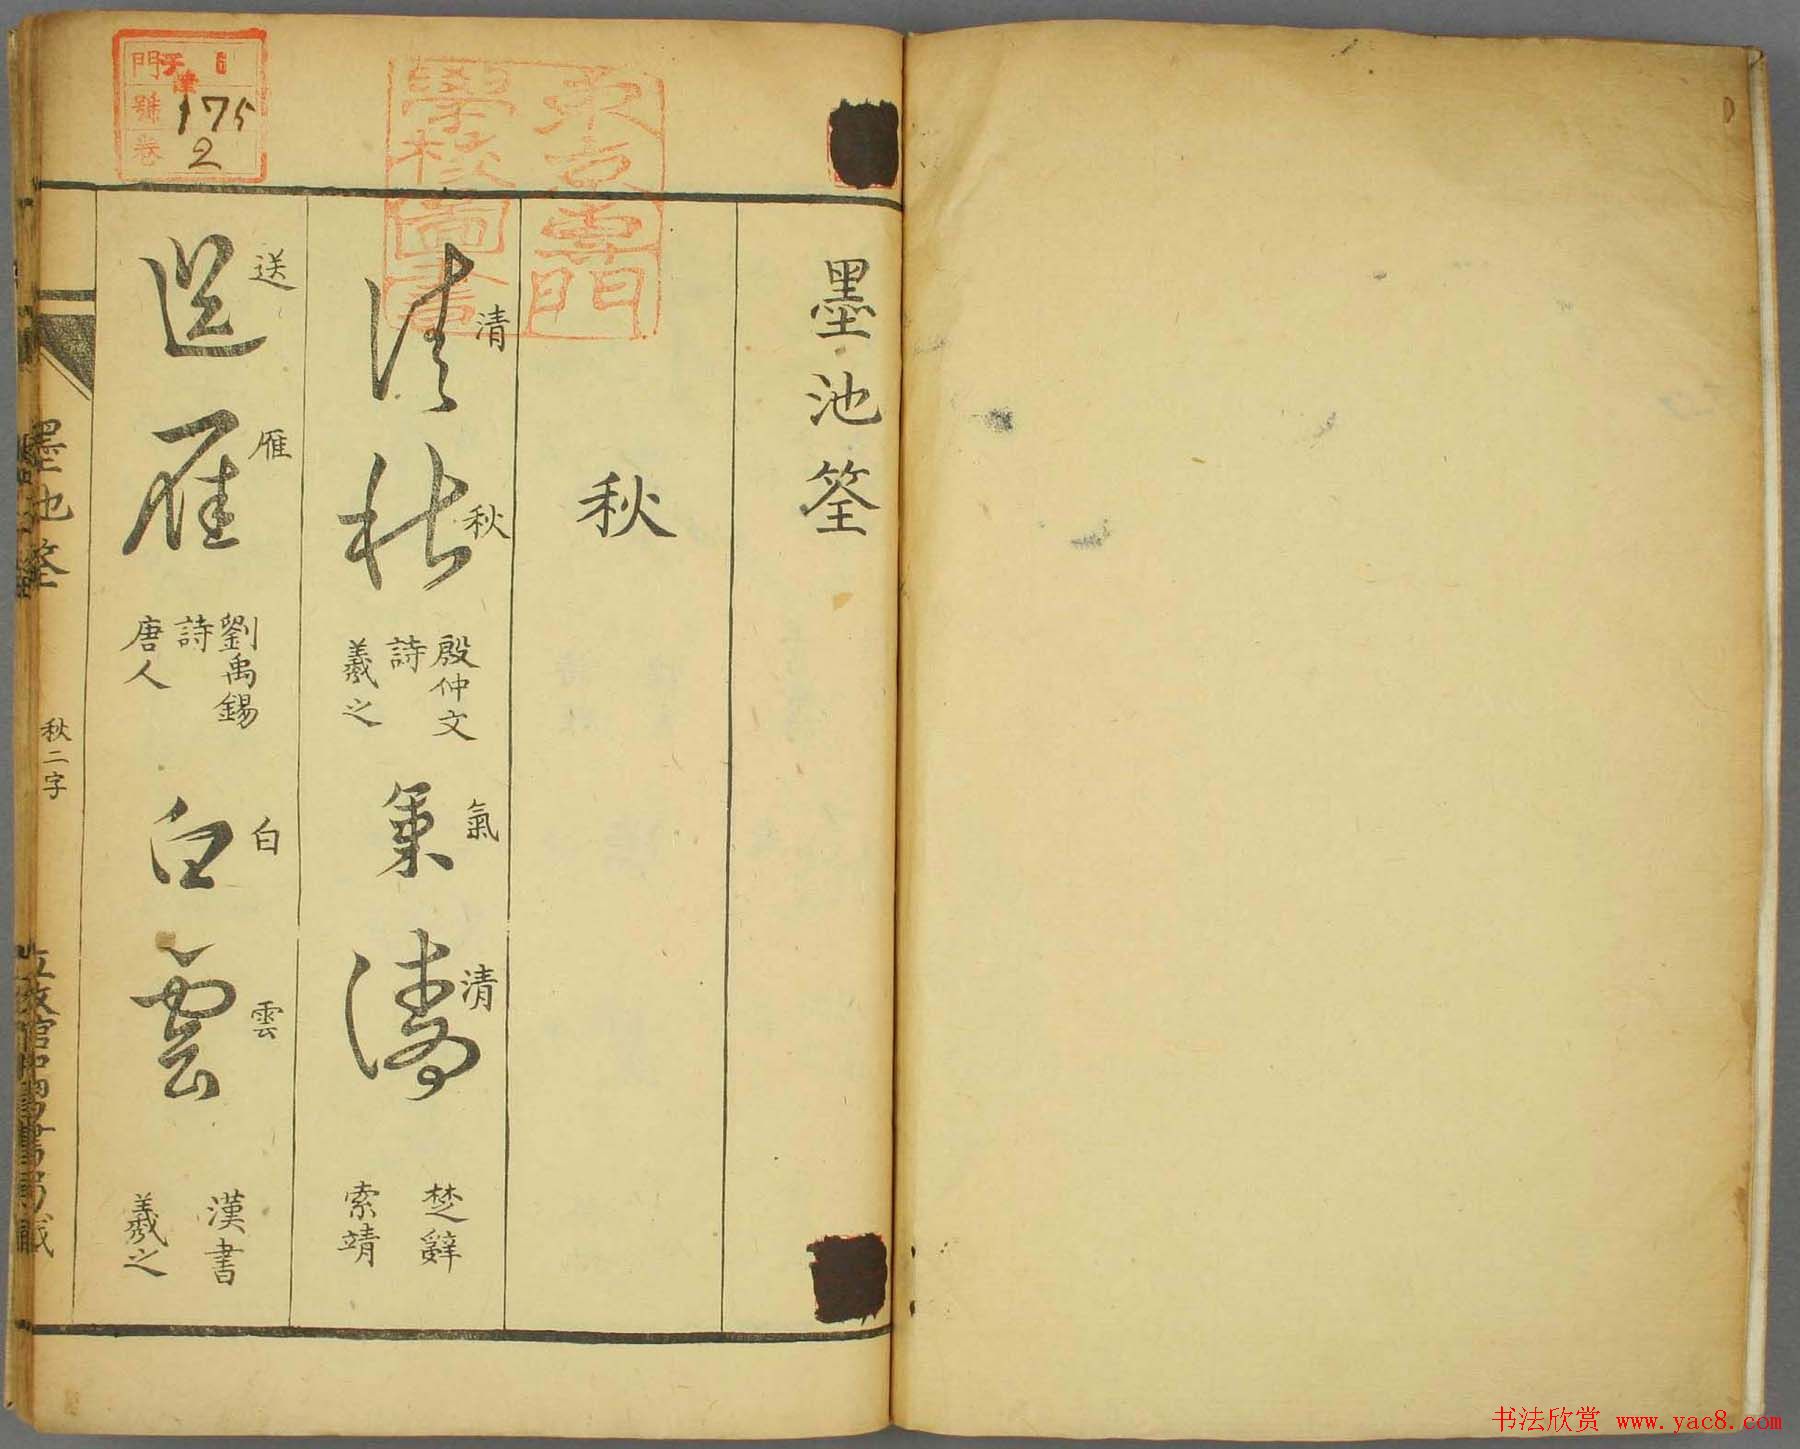 墨池筌
秋
清秋
清秋
殷仲文
詩
羲之
氣清
氣清
楚辭
索靖
送雁
送雁
劉禹錫
詩
唐人
白雲
白雲
漢書
羲之
墨池筌
秋二字
東京專門
學校圖書
門
號 175
卷 2
书法欣赏 www.yac8.com